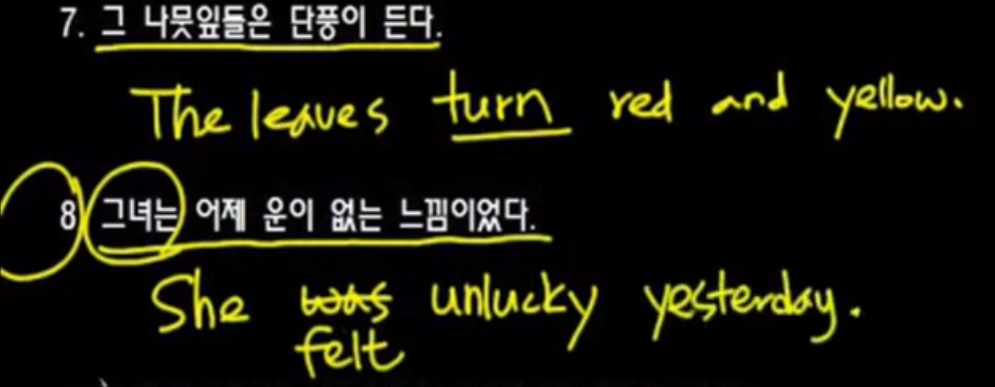 7. 그 나뭇잎들은 단풍이 든다.
The leaves turn red and yellow.
8 그녀는 어제 운이 없는 느낌이었다.
She was unlucky yesterday.
felt